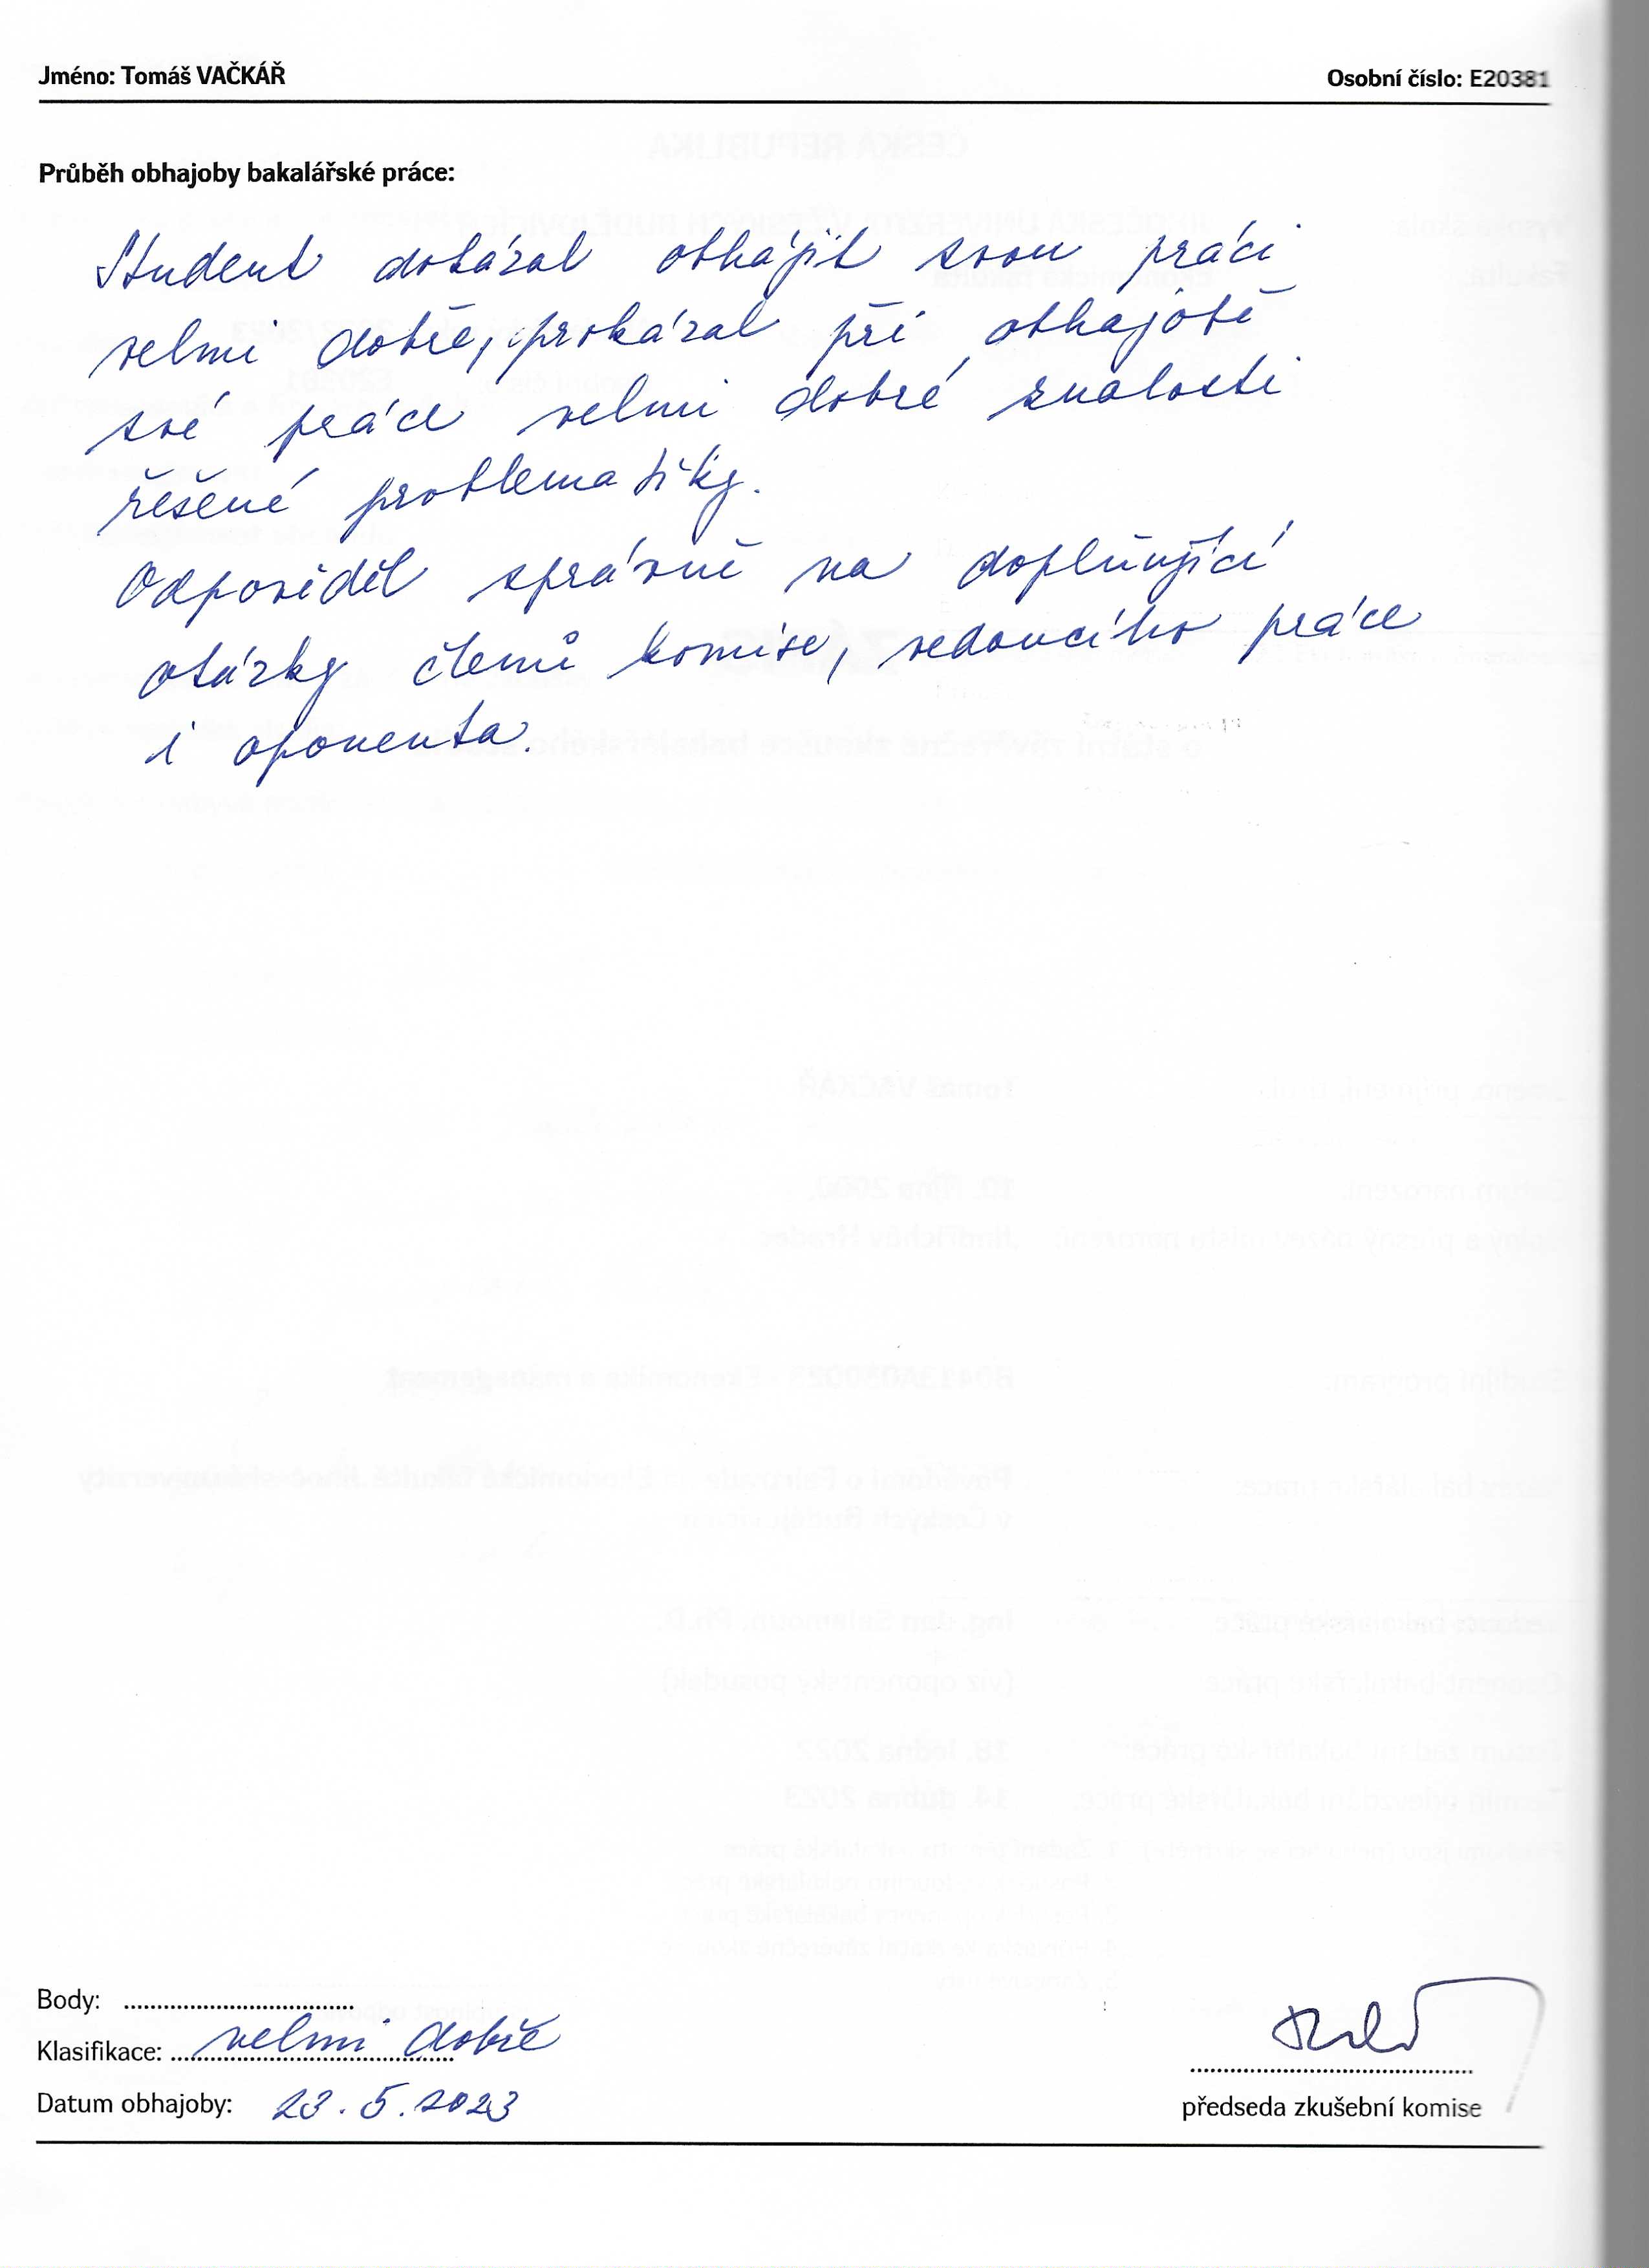 Jméno: Tomáš VAČKÁŘ
Osobní číslo: E20381
Průběh obhajoby bakalářské práce:
Student dokázal obhájit svou práci
velmi dobře, prokázal při obhajobě
své práce velmi dobré znalosti
řešené problematiky.
Odpověděl správně na doplňující
otázky členů komise, vedoucího práce
i oponenta.
Body:
Klasifikace: velmi dobře
Datum obhajoby: 23.5.2023
předseda zkušební komise